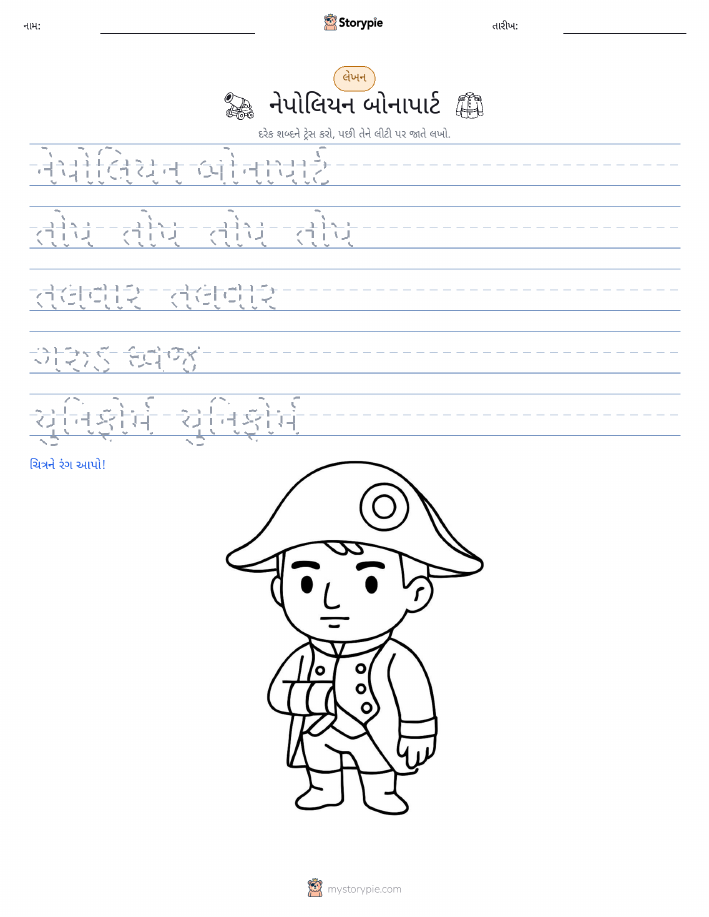 નામ:
Storypie
તારીખ:
લેખન
નેપોલિયન બોનાપાર્ટ
દરેક શબ્દને ટ્રેસ કરો, પછી તેને લીટી પર જાતે લખો.
નેપોલિયન બોનાપાર્ટ
તોપ તોપ તોપ તોપ
તલવાર તલવાર
ગરુડ ધ્વજ
યુનિફોર્મ યુનિફોર્મ
ચિત્રને રંગ આપો!
mystorypie.com